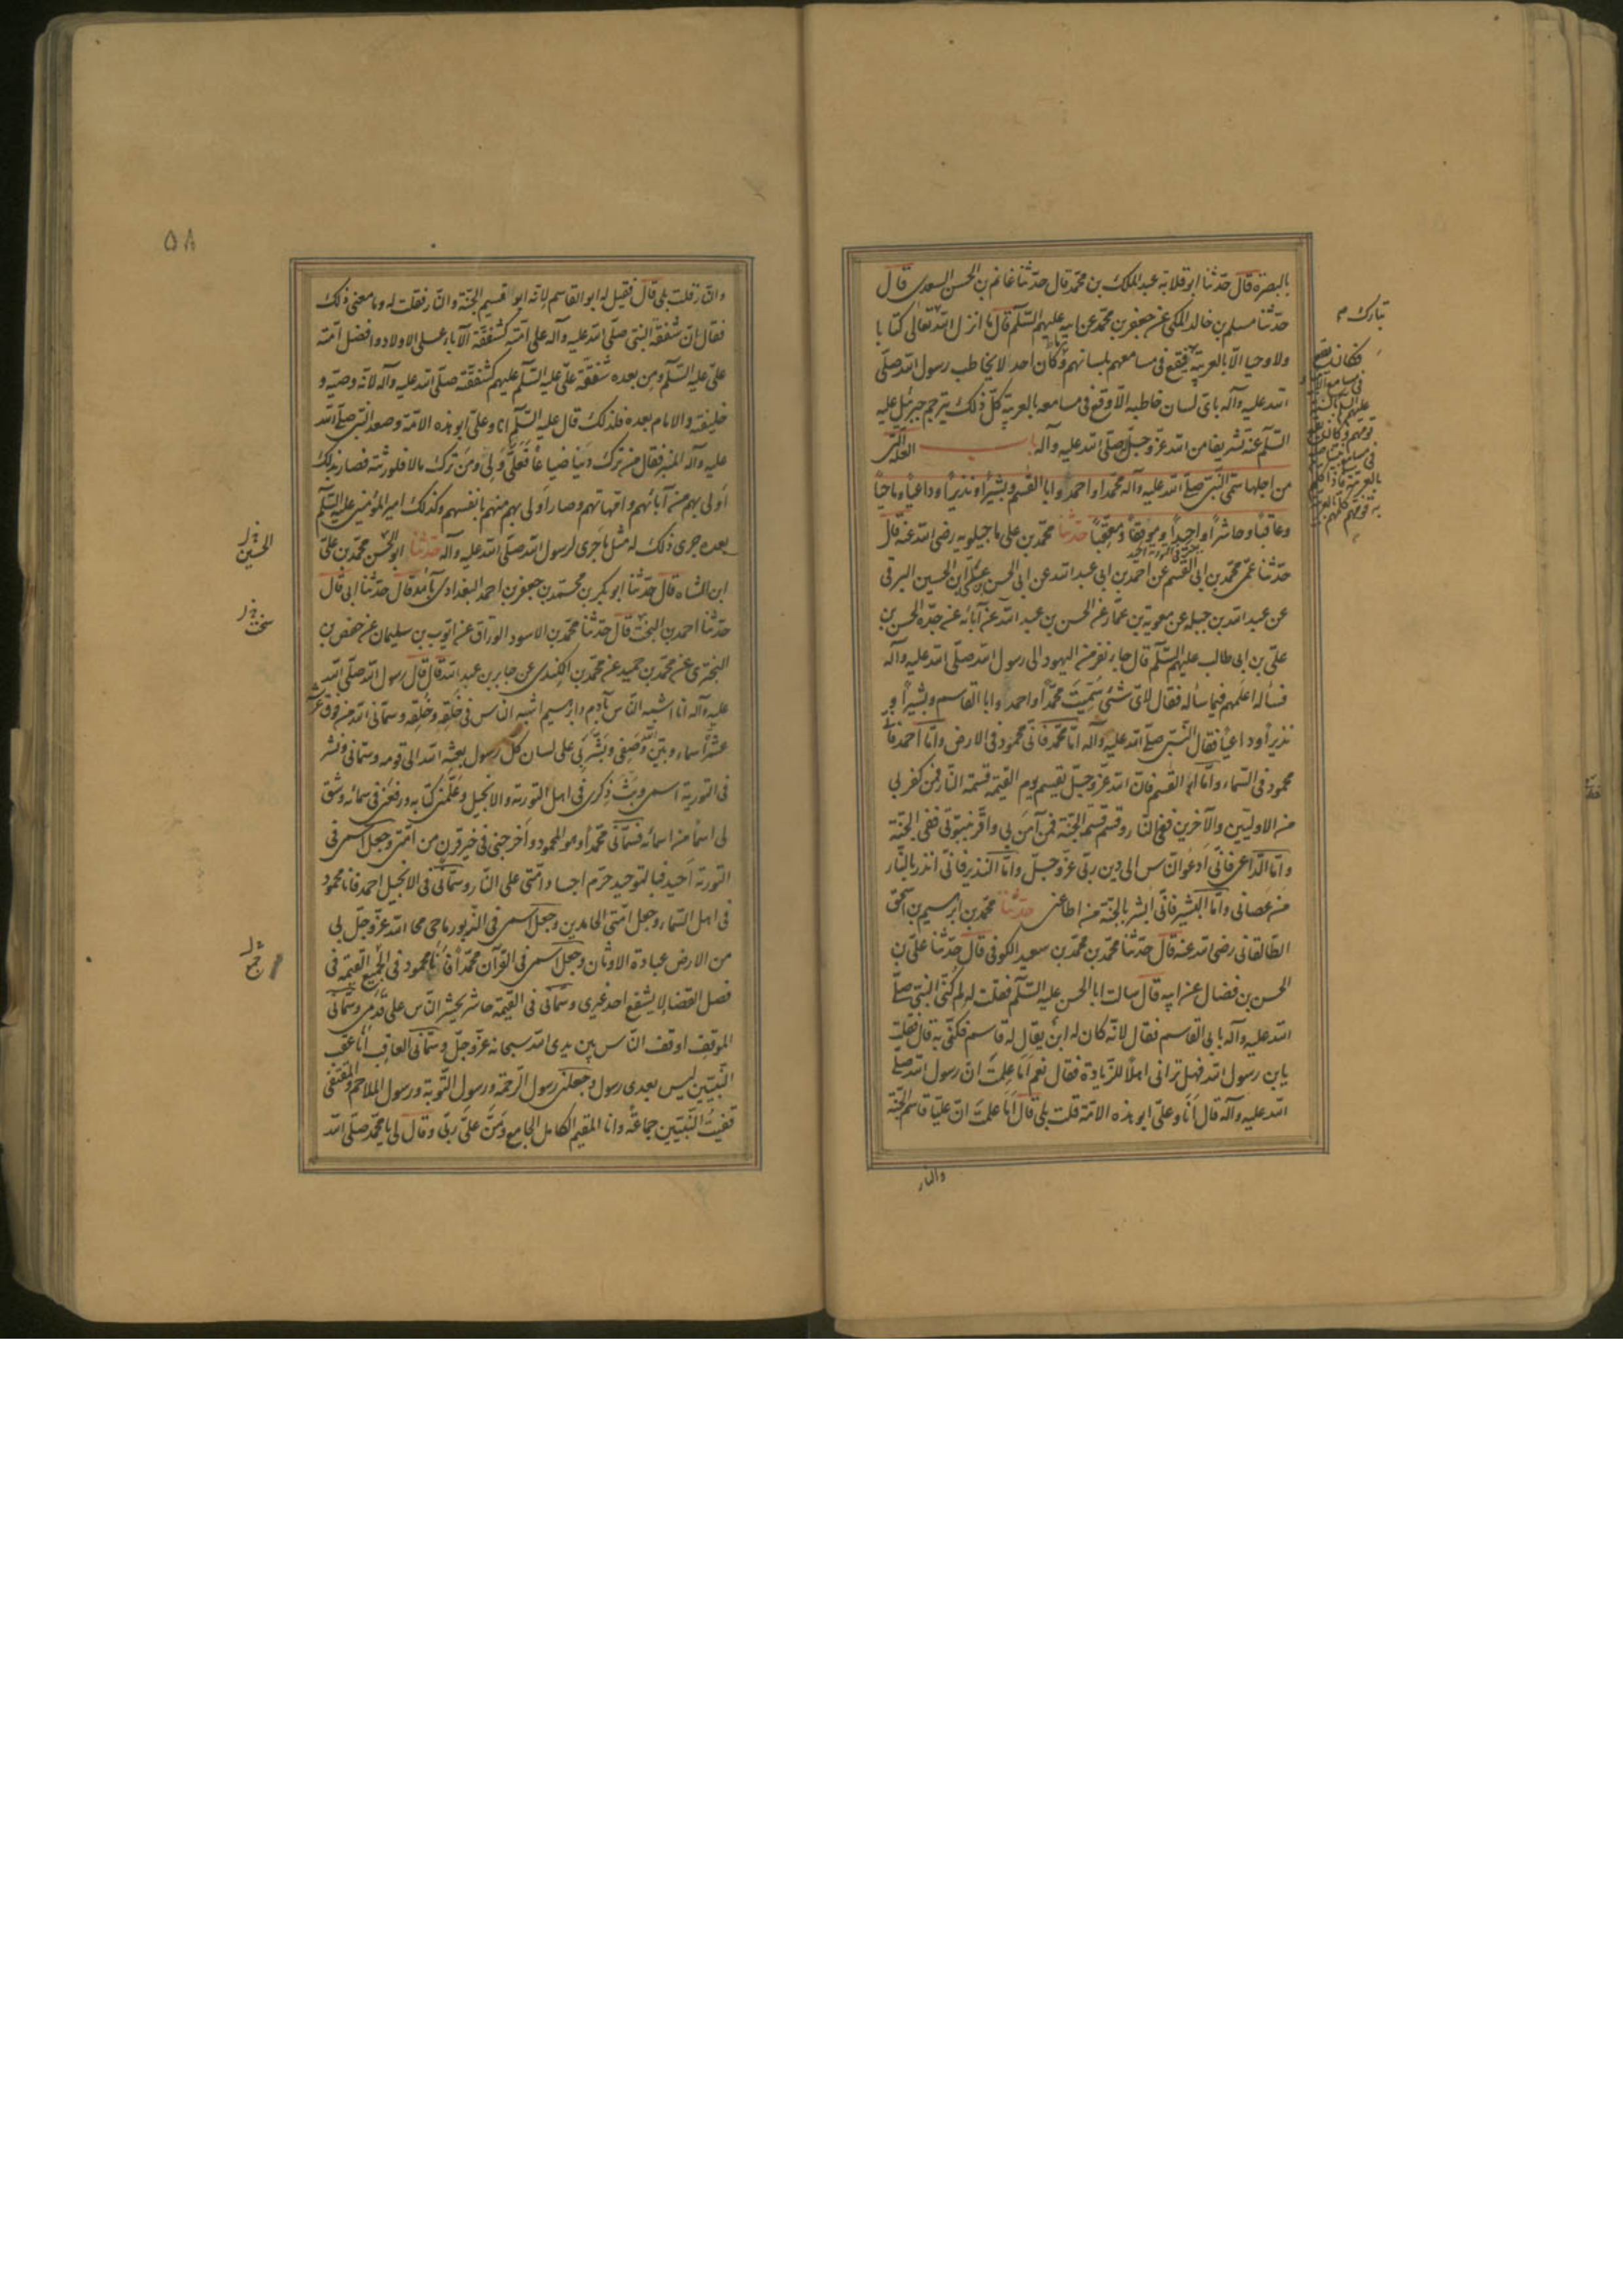 بالبصرة قال حدثنا ابو قلابة عبد الملك بن محمد قال حدثنا غانم بن الحسن السعدى قال
حدثنا مسلم بن خالد المكى عن جعفر بن محمد عن ابيه عليهم السلم قال ما انزل الله تعالى كتابا
ولا وحيا الا بالعربية فيقع فى مسامعهم بلسانهم وكان احد لا يخاطب رسول الله صلى
الله عليه وآله باى لسان خاطبه الا وقع فى مسامعه بالعربية كل ذلك يترجم جبرئيل عليه
السلم عنه تشريفا من الله عز وجل صلى الله عليه وآله باب العلة التى
من اجلها سمى النبى صلى الله عليه وآله محمدا واحمد وابا القسم وبشيرا ونذيرا وداعيا وماحيا
وعاقبا وحاشرا واحيدا وموقفا ومعقبا حدثنا محمد بن على ماجيلويه رضى الله عنه قال
حدثنا عمى محمد بن ابى القسم عن احمد بن ابى عبد الله عن ابى الحسن على بن الحسين البرقى
عن عبد الله بن جبلة عن معوية بن عمار عن الحسن بن عبد الله عن آبائه عن جده الحسن بن
على بن ابى طالب عليهم السلم قال جاء نفر من اليهود الى رسول الله صلى الله عليه وآله
فسأله اعلمهم فيما سأله فقال لاى شئ سميت محمدا واحمد وابا القاسم وبشيرا و
نذيرا وداعيا فقال النبى صلى الله عليه وآله اما محمد فانى محمود فى الارض واما احمد فانى
محمود فى السماء واما ابو القسم فان الله عز وجل يقسم يوم القيمة قسمة النار فمن كفر بى
من الاولين والآخرين ففى النار وقسم قسم الجنة فمن آمن بى واقر بنبوتى ففى الجنة
واما الداعى فانى ادعو الناس الى دين ربى عز وجل واما النذير فانى انذر بالنار
من عصانى واما البشير فانى ابشر بالجنة من اطاعنى حدثنا محمد بن ابرهيم بن اسحق
الطالقانى رضى الله عنه قال حدثنا محمد بن محمد بن سعيد الكوفى قال حدثنا على بن
الحسن بن فضال عن ابيه قال سالت ابا الحسن عليه السلم فقلت له لم كنى النبى صلى
الله عليه وآله بابى القاسم فقال لانه كان له ابن يقال له قاسم فكنى به قال فقلت
يابن رسول الله فهل ترانى اهلا للزيادة فقال نعم اما علمت ان رسول الله صلى
الله عليه وآله قال انا وعلى ابو هذه الامة قلت بلى قال اما علمت ان عليا قاسم الجنة
والنار
تبارك و
فكان يقع
فى مسامع الانبيا
عليهم السلم بالسنة
قومهم وكان يقع
فى مسامع نبينا
بالعربية فاذا كلم
به قومه كلمهم بالعربية
٥٨
والنار قلت بلى قال فقيل له ابو القاسم لانه ابو قسيم الجنة والنار فقلت له وما معنى ذلك
فقال ان شفقة النبى صلى الله عليه وآله على امته كشفقة الآباء على الاولاد وافضل امته
على عليه السلم ومن بعده شفقة على عليه السلم عليهم كشفقته صلى الله عليه وآله لانه وصيه و
خليفته والامام بعده فلذلك قال عليه السلم انا وعلى ابو هذه الامة وصعد النبى صلى الله
عليه وآله المنبر فقال من ترك دينا او ضياعا فعلى والى ومن ترك مالا فلورثته فصار بذلك
اولى بهم من آبائهم وامهاتهم وصار اولى بهم منهم بانفسهم وكذلك امير المؤمنين عليه السلم
بعده جرى ذلك له مثل ما جرى لرسول الله صلى الله عليه وآله حدثنا ابو الحسن محمد بن على
ابن الشاه قال حدثنا ابو بكر بن محمد بن جعفر بن احمد البغدادى بآمد قال حدثنا ابى قال
حدثنا احمد بن البخت قال حدثنا محمد بن الاسود الوراق عن ايوب بن سليمان عن حفص بن
البخترى عن محمد بن حميد عن محمد بن الكندى عن جابر بن عبد الله قال قال رسول الله صلى الله
عليه وآله انا اشبه الناس بآدم وابرهيم اشبه الناس فى خلقه وخلقه وسمانى الله من فوق عرشه
عشرة اسماء وبين الله وصفى وبشر بى على لسان كل رسول بعثه الله الى قومه وسمانى ونشر
فى التورية اسمى وبث ذكرى فى اهل التورية والانجيل وعلمنى كتابه ورفعنى فى سمائه وشق
لى اسما من اسمائه فسمانى محمدا وهو المحمود واخرجنى فى خير قرن من امتى وجعل اسمى فى
التورية احيد فبالتوحيد حرم اجساد امتى على النار وسمانى فى الانجيل احمد فانا محمود
فى اهل السماء وجعل امتى الحامدين وجعل اسمى فى الزبور ماحى محا الله عز وجل بى
من الارض عبادة الاوثان وجعل اسمى فى القرآن محمدا فانا محمود فى الجميع القيمة فى
فصل القضا لا يشفع احد غيرى وسمانى فى القيمة حاشر يحشر الناس على قدمى وسمانى
الموقف اوقف الناس بين يدى الله سبحانه عز وجل وسمانى العاقب انا عقب
النبيين ليس بعدى رسول وجعلنى رسول الرحمة ورسول التوبة ورسول الملاحم والمقتفى
قفيت النبيين جماعة وانا المقيم الكامل الجامع ومن على ربى وقال لى يا محمد صلى الله
الحسين خ ل
سخت خ ل